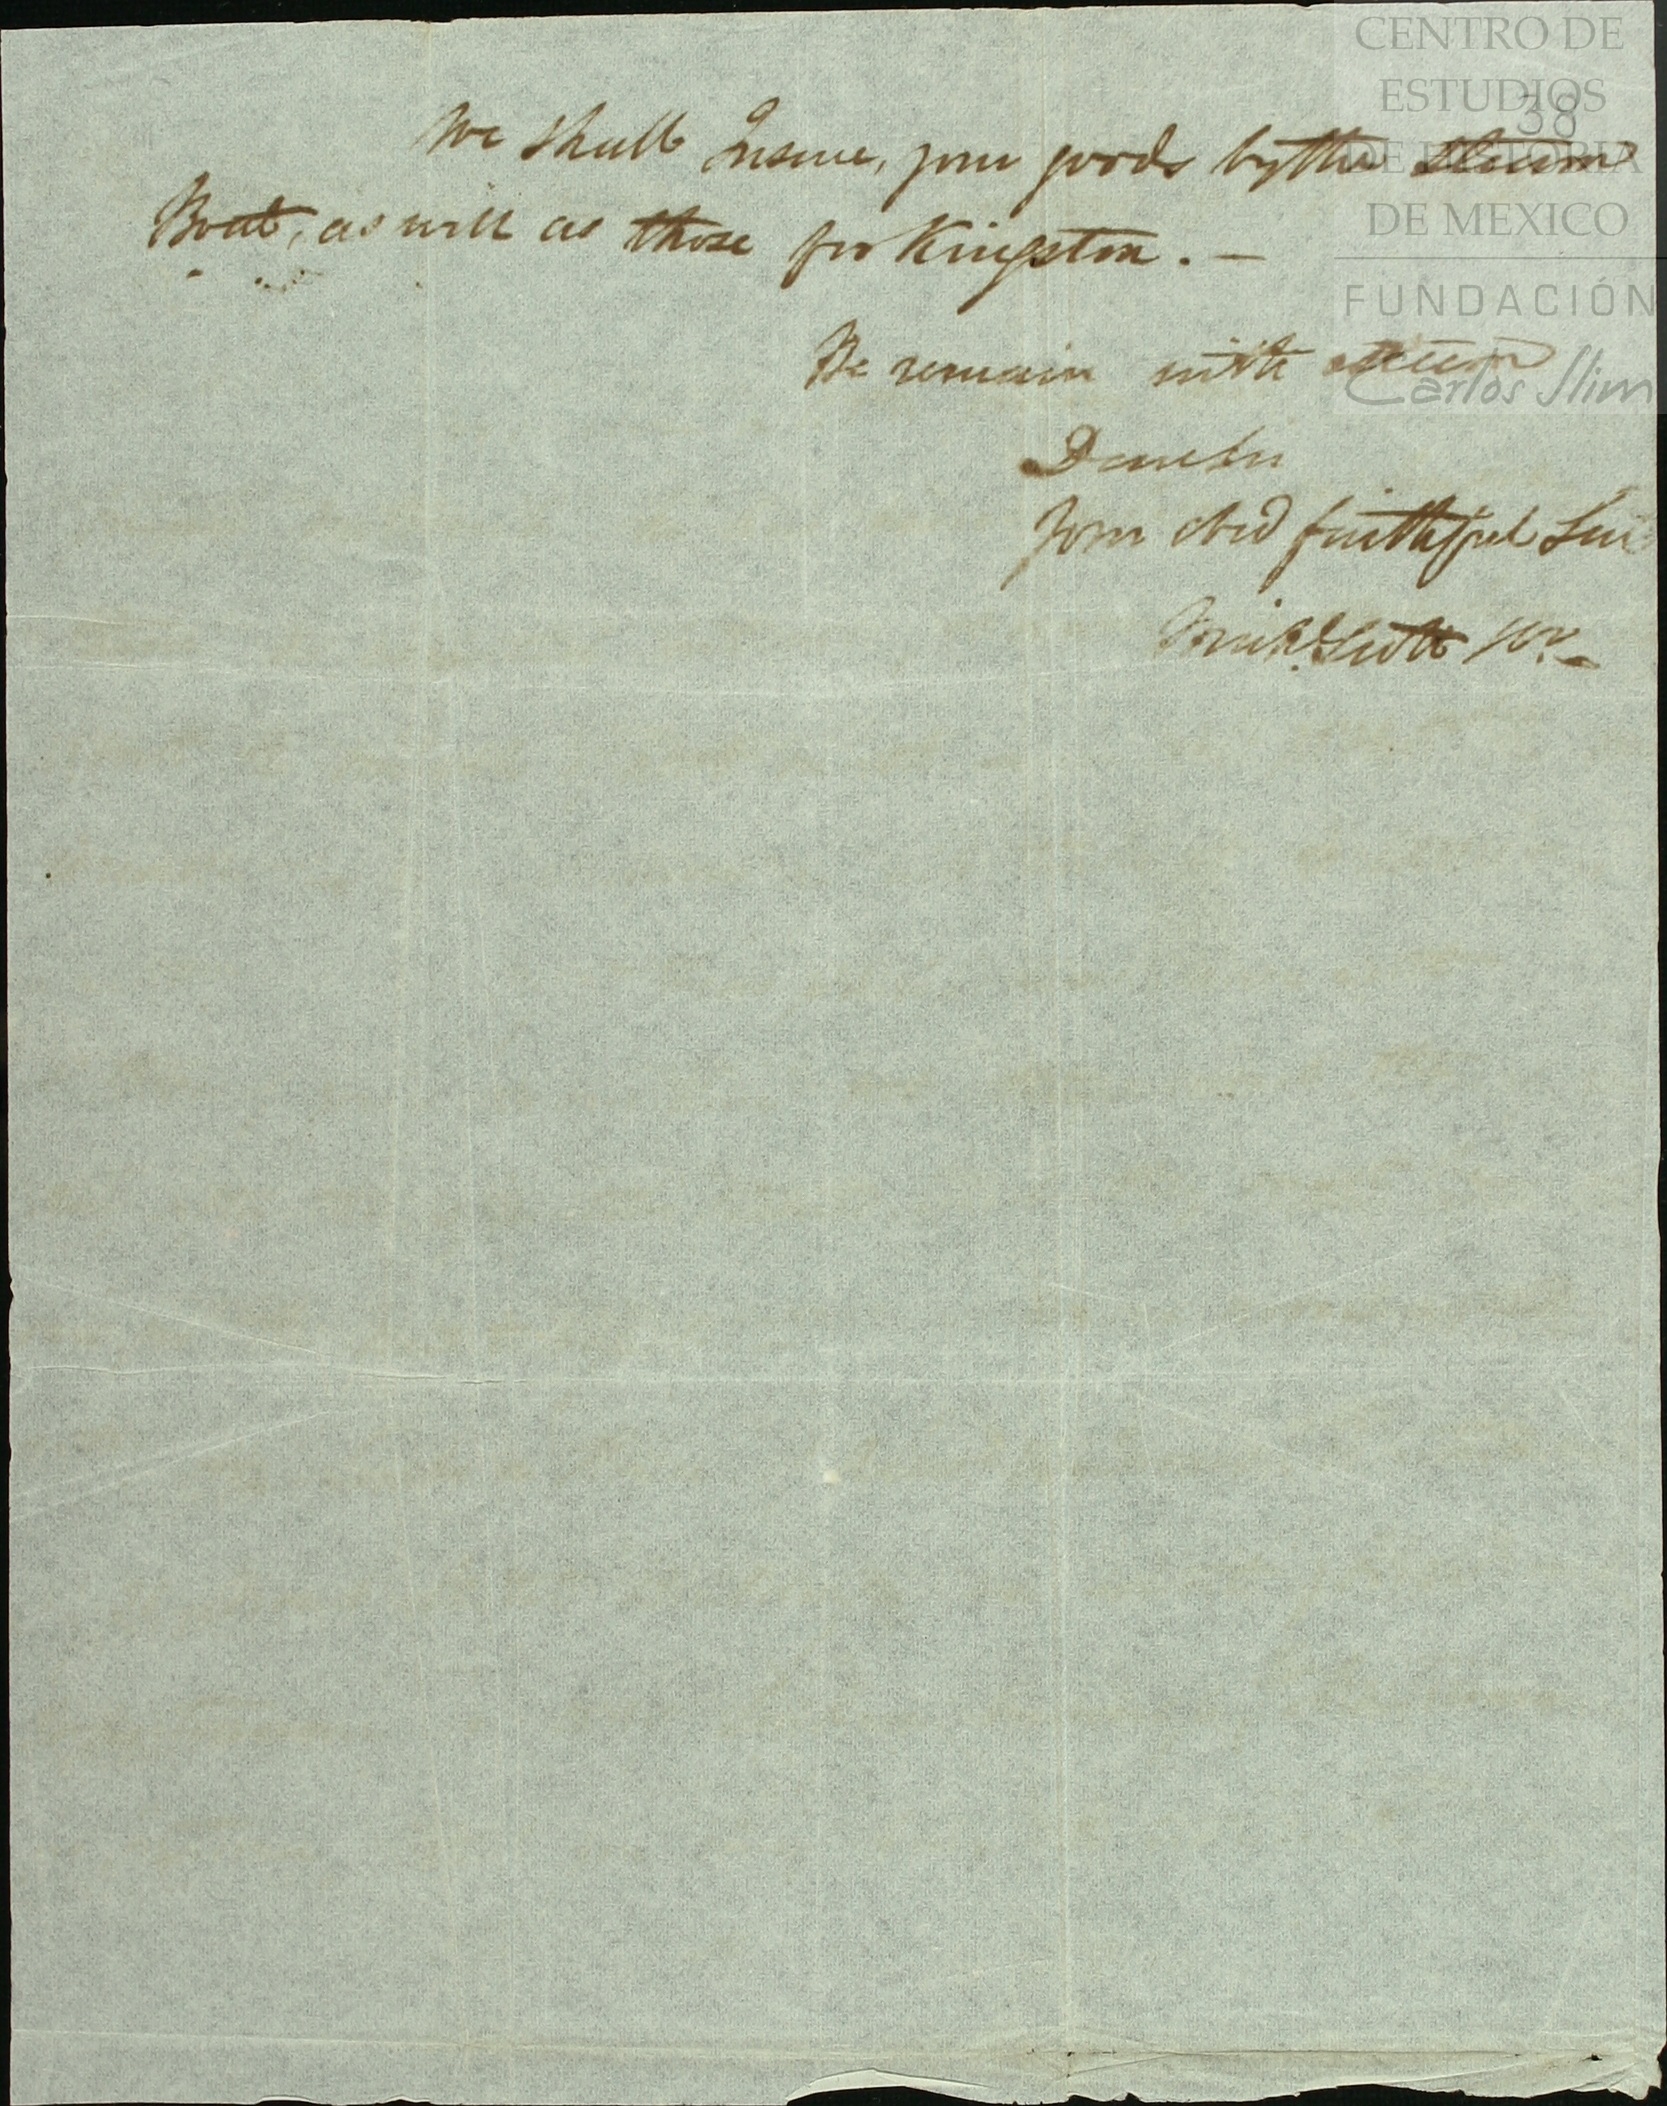 We shall Insure, your goods by the Steam
Boat, as well as those for Kingston. —
We remain with esteem
Dear Sir
Your obed faithful
Scott
38
CENTRO DE
ESTUDIOS
DE HISTORIA
DE MEXICO
FUNDACIÓN
Carlos Slim